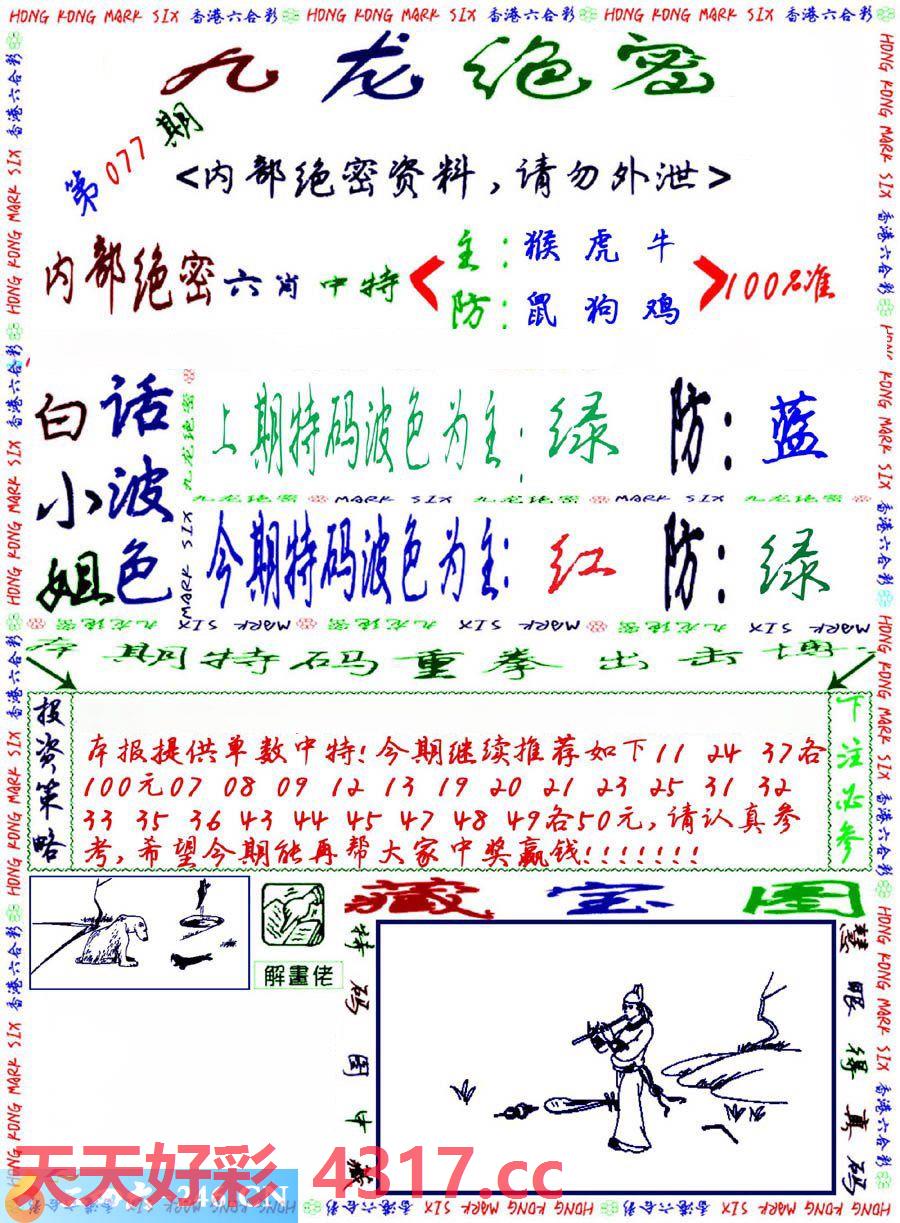 HONG KONG MARK SIX 香港六合彩 HONG KONG MARK SIX 香港六合彩 HONG KONG MARK SIX 香港六合彩
九龙绝密
第077期
<内部绝密资料,请勿外泄>
内部绝密六肖中特
主:猴虎牛
防:鼠狗鸡
100%准
白话小姐
波色
上期特码波色为主:绿 防:蓝
九龙绝密 MARK SIX 九龙绝密 MARK SIX 九龙绝密
今期特码波色为主:红 防:绿
MARK SIX 九龙绝密 MARK SIX 九龙绝密 MARK SIX 九龙绝密
期特码重拳出击
投资策略
本报提供单数中特!今期继续推荐如下11 24 37各
100元07 08 09 12 13 19 20 21 23 25 31 32
33 35 36 43 44 45 47 48 49各50元,请认真参
考,希望今期能再帮大家中奖赢钱!!!!!!!
下注必参
解畫佬
藏宝图
特码图中
慧眼得真码
天天好彩 4317.cc
246.CN